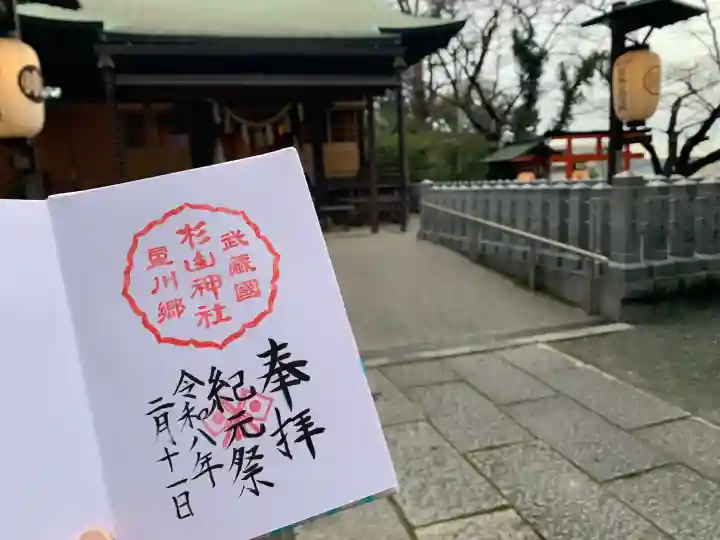 武蔵國
杉山神社
星川郷
奉拝
紀元祭
令和八年
二月十一日